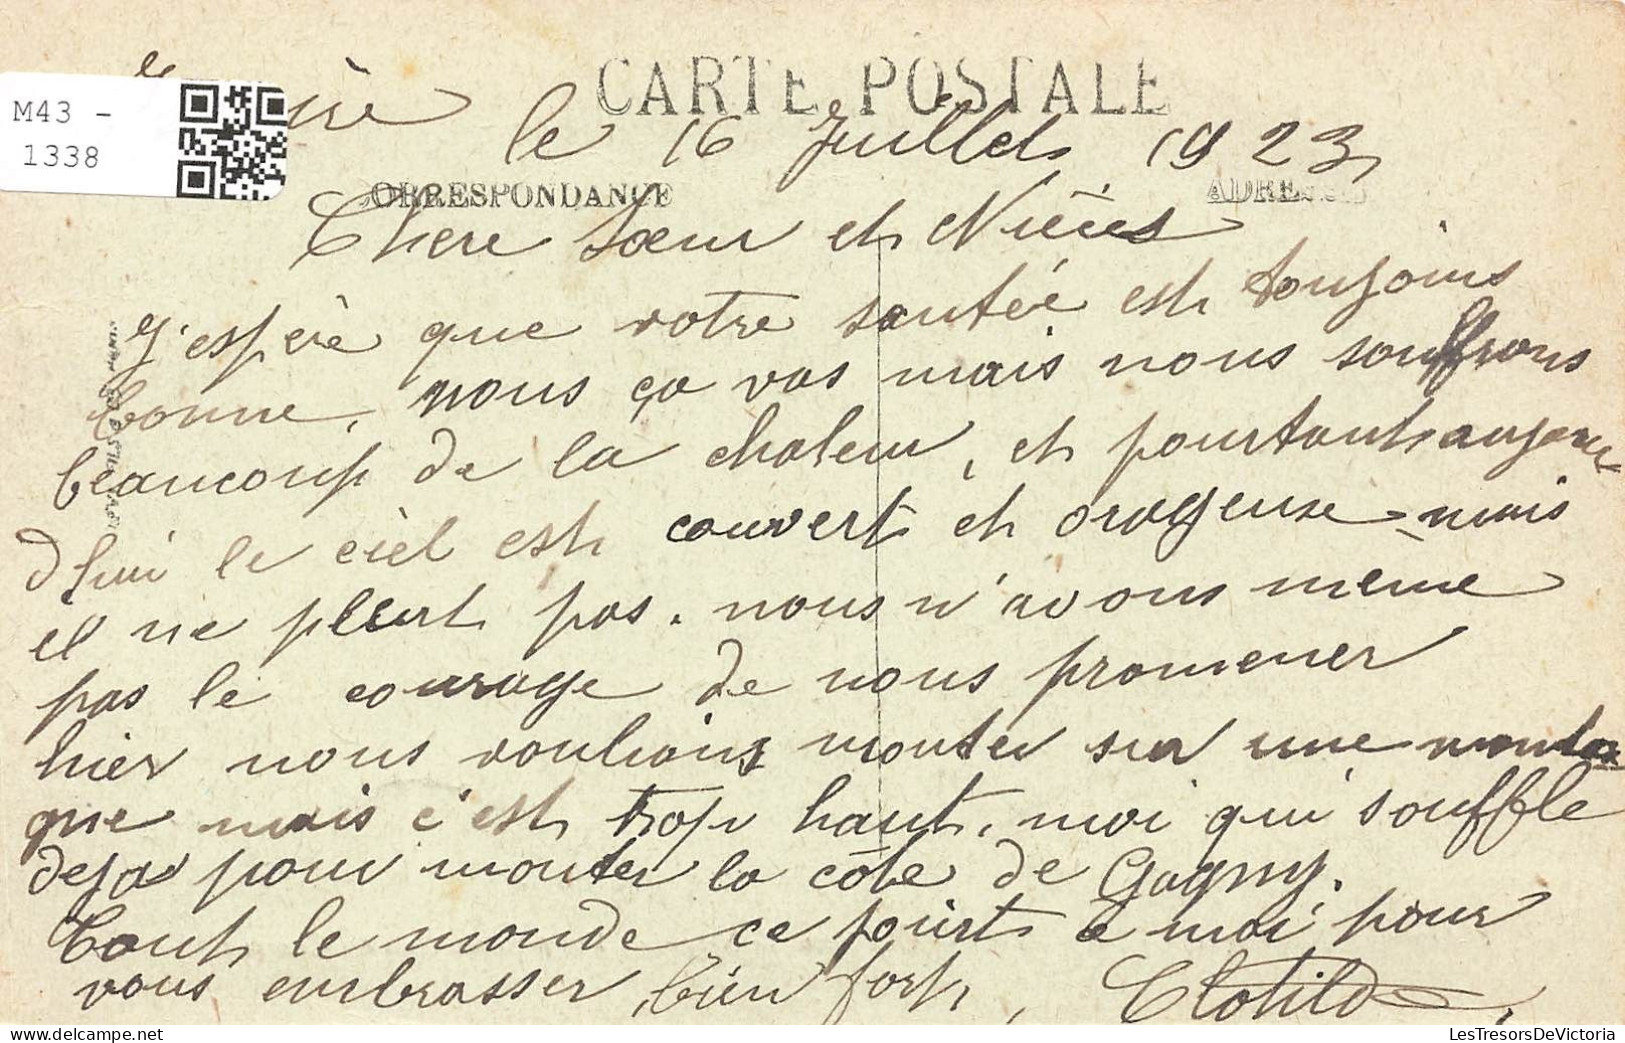 CARTE POSTALE
M43 -
1338
le 16 Juillet 1923,
ORRESPONDANCE
Chere Sœur et Nièces
J'espère que votre santée est toujours
bonne, nous ça vas mais nous souffrons
beaucoup de la chaleur, et pourtant aujour
d'hui le ciel est couvert et orageuse mais
il ne pleut pas. nous n'avons meme
pas le courage de nous promener
hier nous voulions monter sur une monta
gne mais c'est trop haut, moi qui souffle
deja pour monter la côte de Gagny.
Tout le monde ce joint à moi pour
vous embrasser, bien fort,
Clotilde,
LesTresorsDeVictoria